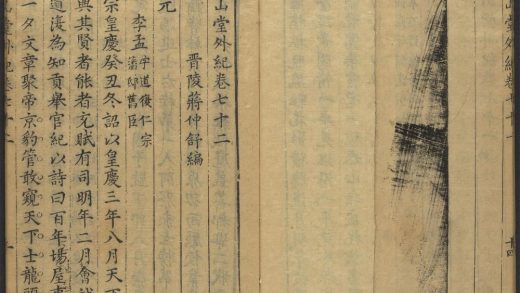 堂外紀卷七十一
十四
山堂外紀卷七十二
晋陵蔣仲舒編
元
李孟字道復仁宗
潛邸舊臣
宗皇慶癸丑冬詔以皇慶三年八月天下
興其賢者能者充賦有司明年二月會試
道復為知貢舉官紀以詩曰百年場屋事
一夕文章聚帝京豹管敢窺天下士龍頭
外紀卷七十二
一